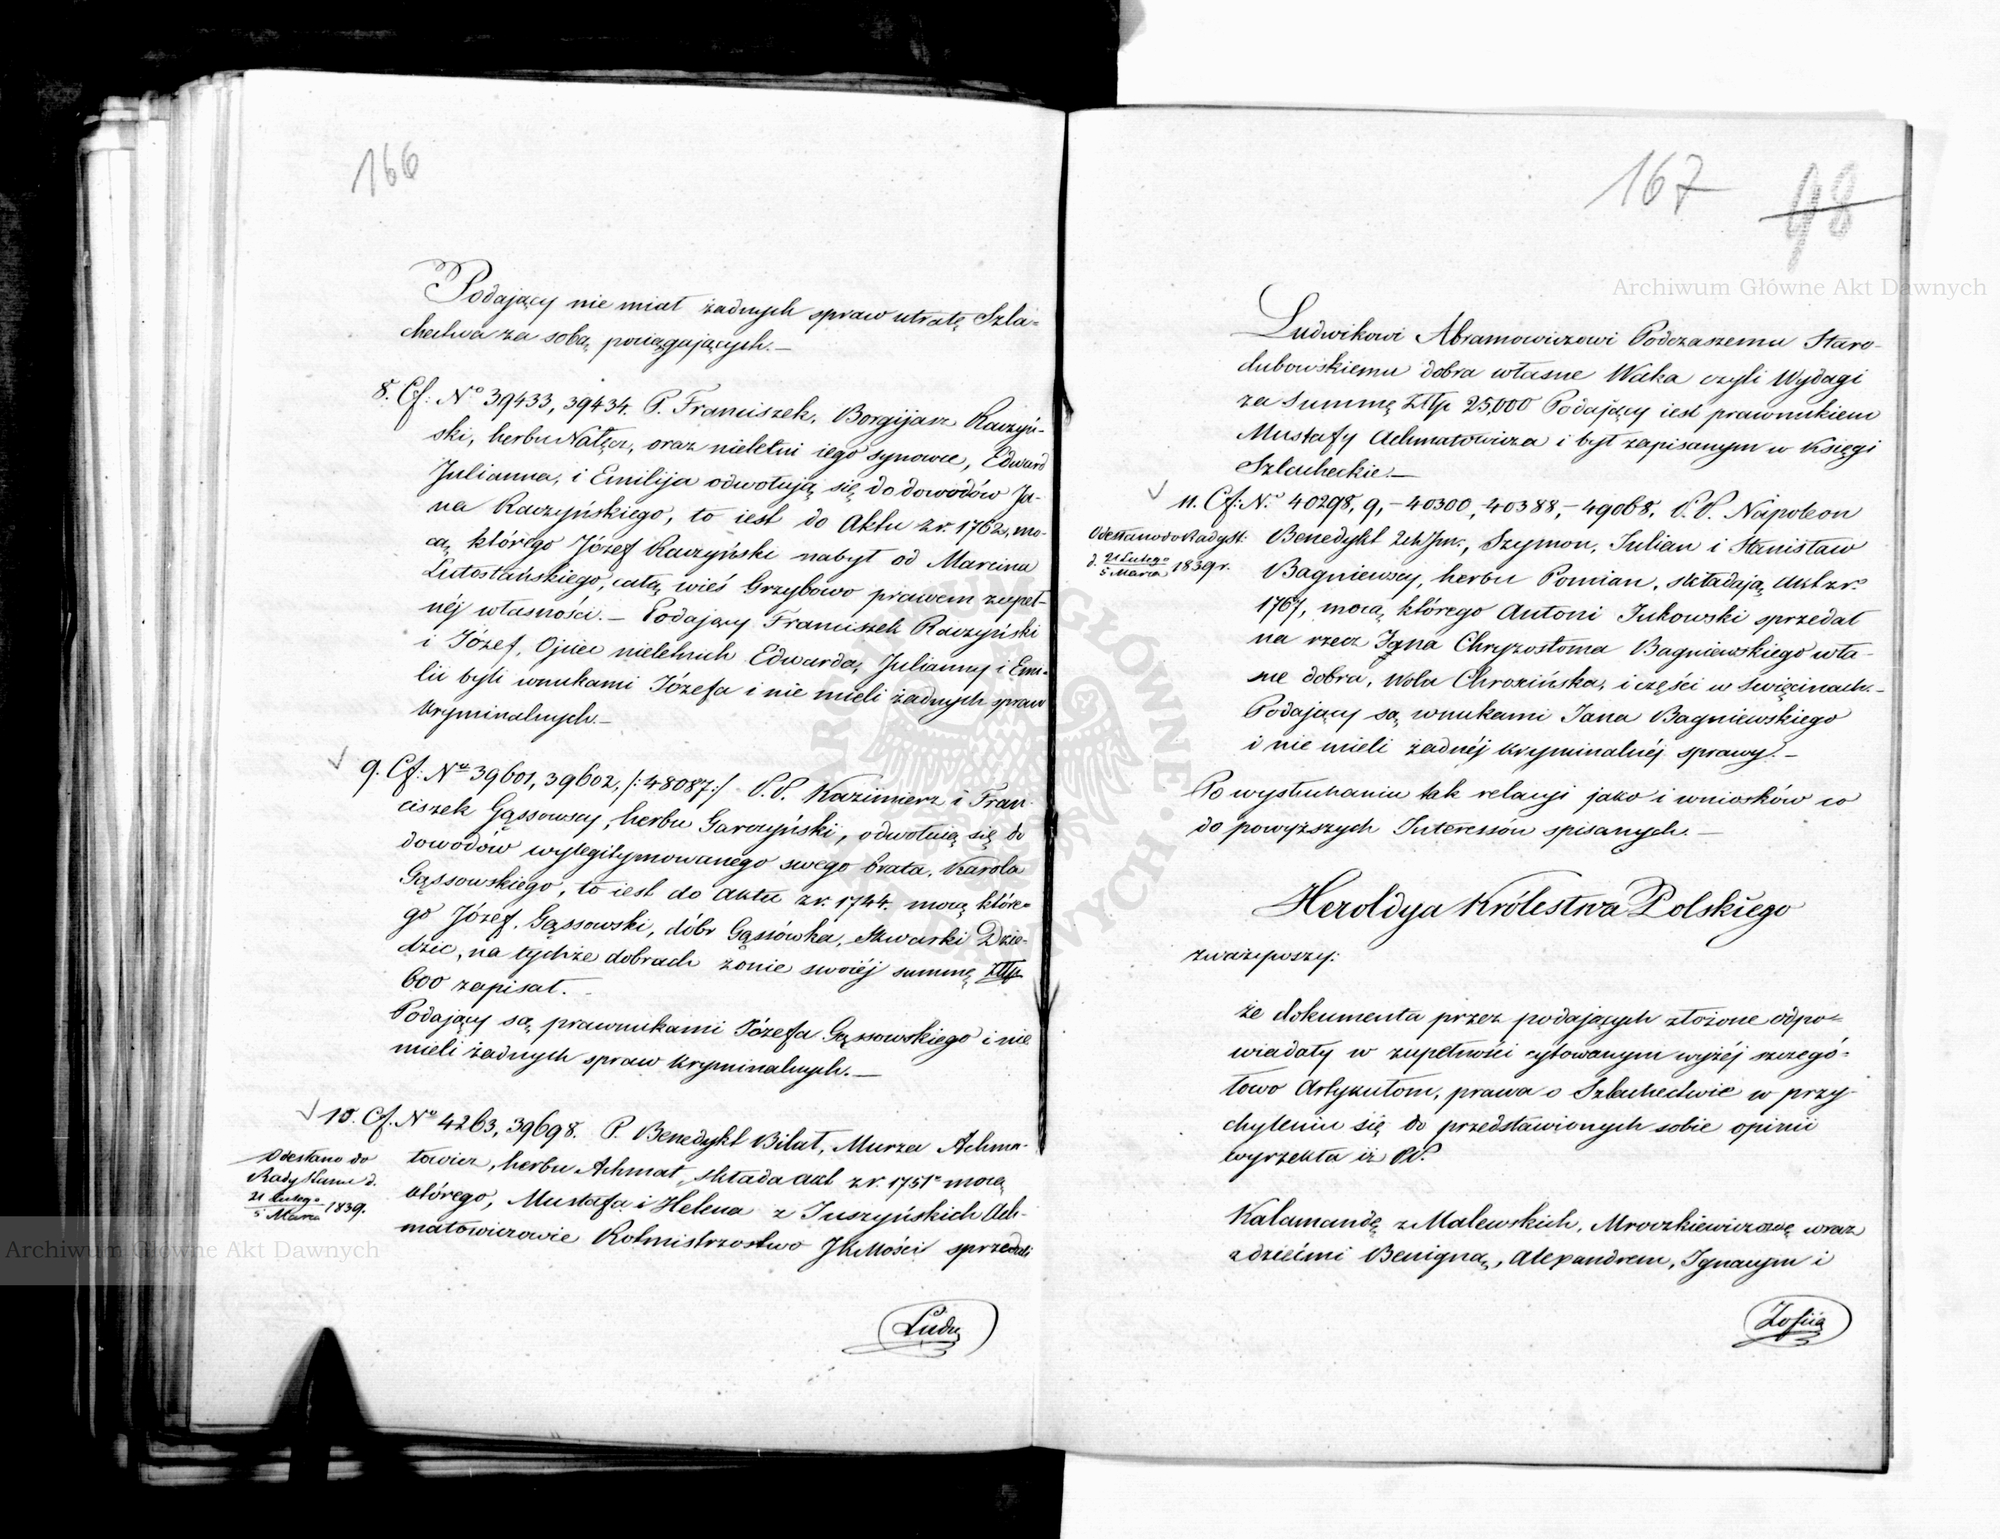 166
Podający nie miał żadnych spraw utratę Szla=
chectwa za sobą pociągających.—
8. Cf: No 39433, 39434. P. Franciszek, Borgijasz Raczyń-
ski, herbu Nałęcz, oraz nieletni iego synowce, Edward
Julianna, i Emilija odwołują się do dowodów Ja-
na Raczyńskiego, to iest do Aktu z r. 1762, mo-
cą którego Józef Raczyński nabył od Marcina
Lutostańskiego, całą wieś Grzybowo prawem zupeł-
néj własności.— Podający Franciszek Raczyński
i Józef, Ojciec nieletnich Edwarda, Julianny i Emi-
lii byli wnukami Józefa i nie mieli żadnych spraw
kryminalnych.—
9. Cf: No 39601, 39602, /:48087:/ P.P. Kazimierz i Fran-
ciszek Gąssowscy, herbu Garczyński, odwołują się do
dowodów wylegitymowanego swego brata, Karola
Gąssowskiego, to iest do aktu z r. 1744. mocą które=
go Józef Gąssowski, dóbr Gąssówka, Skwarki Dzie-
dzic, na tychże dobrach żonie swoiéj summę Złłp
600 zapisał.—
Podający są prawnukami Józefa Gąssowskiego i nie
mieli żadnych spraw kryminalnych.—
10. Cf. No 4263, 39698. P. Benedykt Bilał, Murza Achma-
Odesłano do
Rady Stanu d.
21 Lutego
5 Marca 1839.
towicz, herbu Achmat, składa akt z r. 1751o mocą
którego, Mustafa i Helena z Juszyńskich Ach-
matowiczowie Rotmistrzostwo JKMości sprzedali
Ludw
Archiwum Główne Akt Dawnych
167
98
Archiwum Główne Akt Dawnych
Ludwikowi Abramowiczowi Podczaszemu Staro-
dubowskiemu dobra własne Waka czyli Wydagi
za Summę Złłp 25,000 Podający iest prawnukiem
Mustafy Achmatowicza i był zapisanym w Księgi
Szlacheckie.—
11. Cf: No 40298, 9,- 40300, 40388,- 49068, P.P. Napoleon
Odesłano do Rady St:
d. 21 Lutego
5 Marca 1839 r.
Benedykt, Szymon, Julian i Stanisław
Bagniewscy, herbu Pomian, składają Akt z r.
1767, mocą którego Antoni Jukowski sprzedał
na rzecz Jana Chryzostoma Bagniewskiego wła-
sne dobra, Wola Chrozińska, i części w Święcinach.—
Podający są wnukami Jana Bagniewskiego
i nie mieli żadnéj kryminalnéj sprawy.—
Po wysłuchaniu tak relacyi jako i wniosków co
do powyższych Interessów spisanych.—
Heroldya Królestwa Polskiego
zważywszy:
że dokumenta przez podających złożone odpo=
wiadały w zupełności cytowanym wyżéj szczegó=
łowo Artykułom, prawa o Szlachectwie w przy-
chyleniu się do przedstawionych sobie opinii
wyrzekła iż PP.
Kalamandę z Malewskich, Mroczkiewiczową wraz
z dziećmi Benigną, Alexandrem, Ignacym i
Zofiią
ARCHIWUM GŁÓWNE AKT DAWNYCH